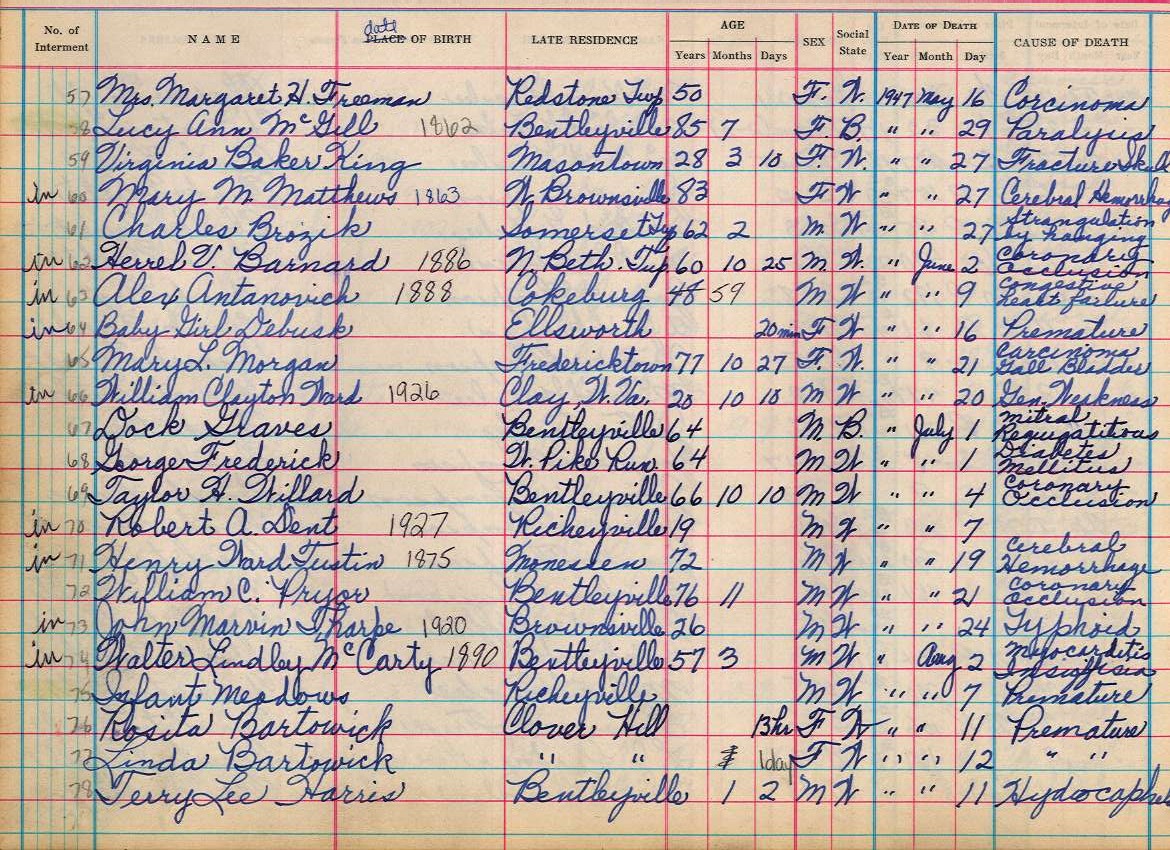 No. of Interment NAME date PLACE OF BIRTH LATE RESIDENCE AGE Years Months Days SEX Social State DATE OF DEATH Year Month Day CAUSE OF DEATH
57 Mrs. Margaret H. Freeman Redstone Twp 50 F. W. 1947 May 16 Corcinoma
58 Lucy Ann McGill 1862 Bentleyville 85 7 F. B. " " 29 Paralysis
59 Virginia Baker King Masontown 28 3 10 F. W. " " 27 Fracture Skull
in 60 Mary M. Matthews 1863 W. Brownsville 83 F W " " 27 Cerebral Hemorrhag
61 Charles Brozik Somerset Twp 62 2 M. W. " " 27 Strangulation by hanging
in 62 Herrel V. Barnard 1886 N. Beth. Twp 60 10 25 M. W. " June 2 Coronary Occlusion
in 63 Alex Antanovich 1888 Cokeburg 48 59 M W " " 9 Congestive heart failure
in 64 Baby Girl Debusk Ellsworth 20 min F W " " 16 Premature
65 Mary L. Morgan Fredericktown 77 10 27 F. W. " " 21 Carcinoma Gall Bladder
in 66 William Clayton Ward 1926 Clay, W. Va. 20 10 10 M W " " 20 Gen. Weakness
67 Dock Graves Bentleyville 64 M. B. " July 1 Mitral Regugatitous
68 George Frederick W. Pike Run 64 M W " " 1 Diabetes Mellitus
69 Taylor H. Willard Bentleyville 66 10 10 M W " " 4 Coronary Occlusion
in 70 Robert A. Dent 1927 Richeyville 19 M W " " 7
in 71 Henry Ward Tustin 1875 Monessen 72 M W " " 19 Cerebral Hemorrhage
72 William C. Pryor Bentleyville 76 11 M W " " 21 Coronary Occlusion
in 73 John Marvin Tharpe 1920 Brownsville 26 M W " " 24 Typhoid
in 74 Walter Lindley McCarty 1890 Bentleyville 57 3 M W " Aug 2 Myocarditis
75 Infant Meadows Richeyville M W " " 7 Premature
76 Rosita Bartowick Clover Hill 13 hr F W " " 11 Premature
77 Linda Bartowick " " 1 day F W " " 12 " "
78 Terry Lee Harris Bentleyville 1 2 M W " " 11